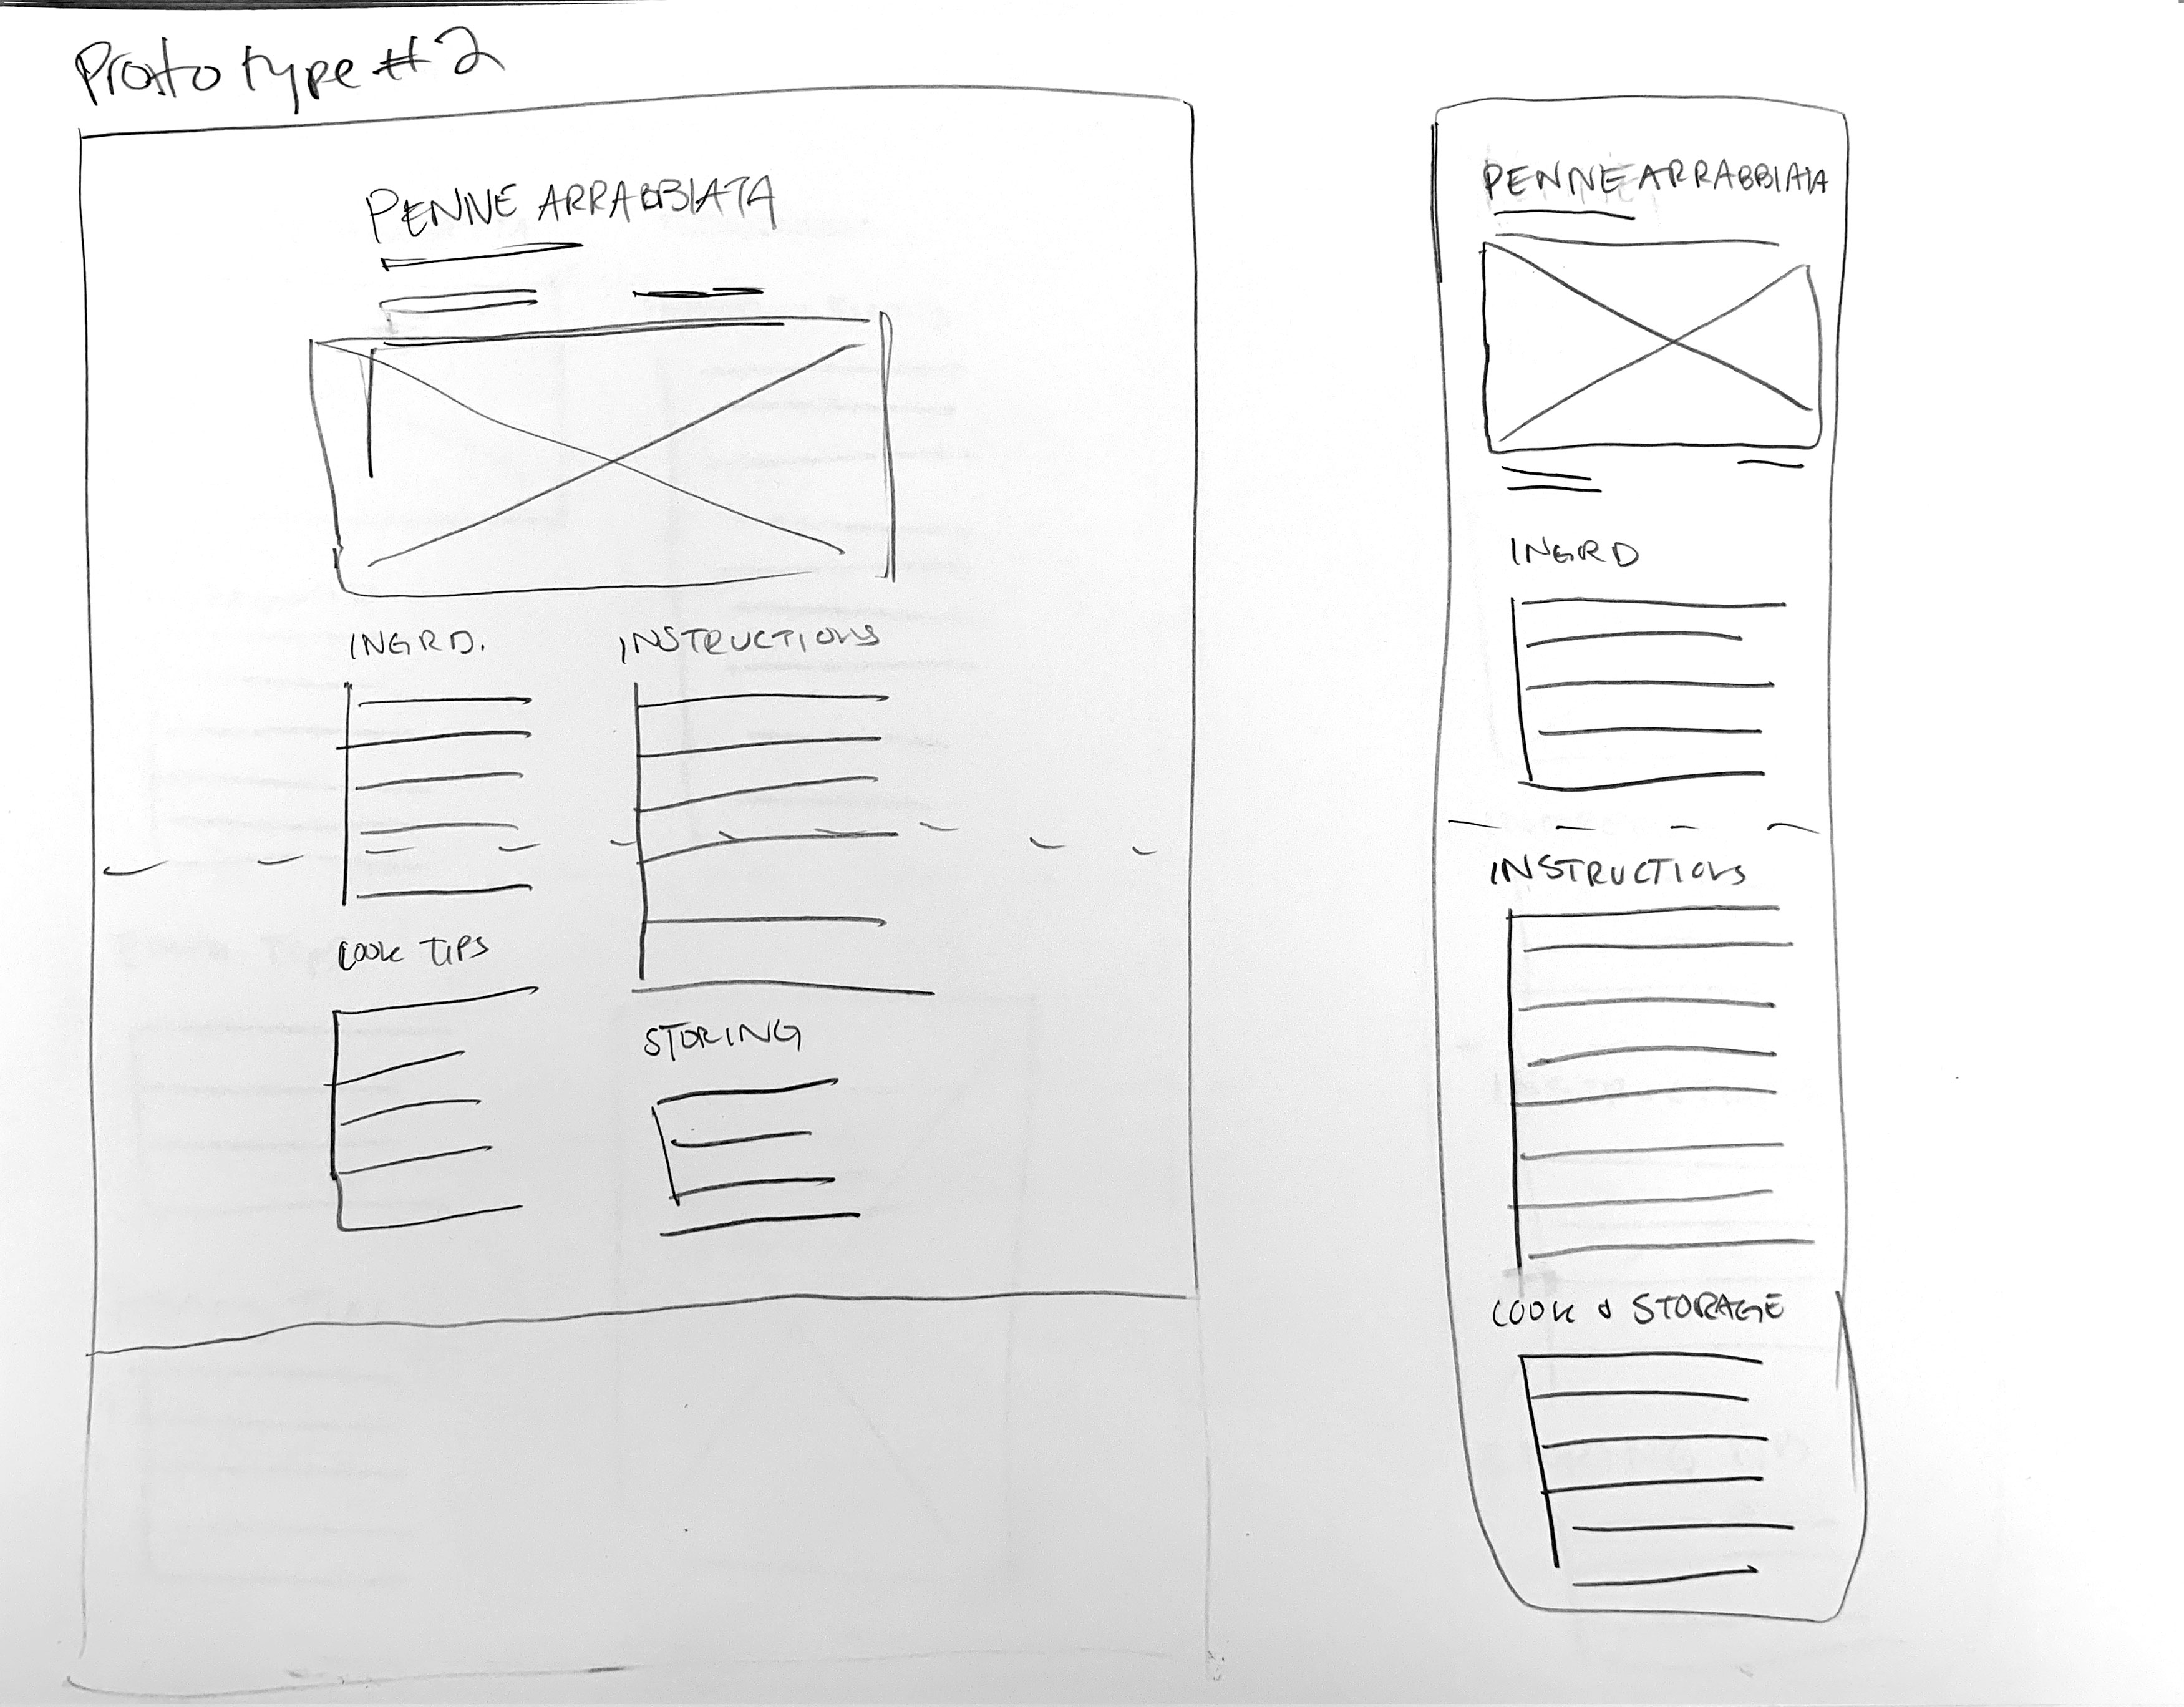 Prototype #2
PENNE ARRABBIATA
INGRD.
INSTRUCTIONS
COOK TIPS
STORING
PENNE ARRABBIATA
INGRD
INSTRUCTIONS
COOK & STORAGE